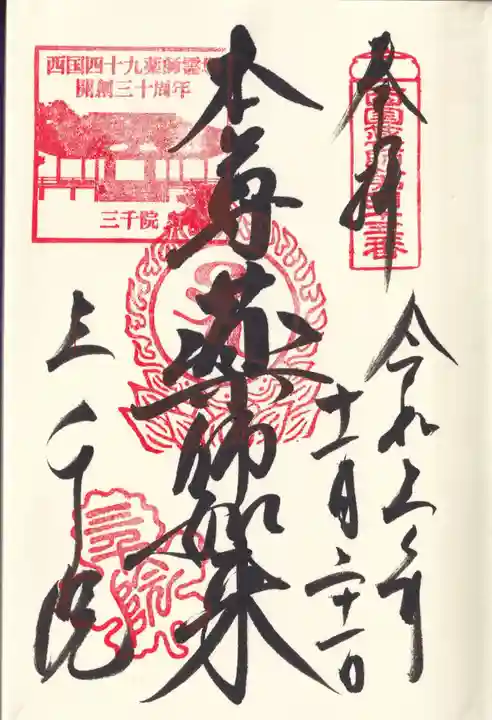 奉拝
令和三年
十一月二十一日
本尊薬師如来
三千院
西国四十九薬師霊場
開創三十周年
三千院
三千院